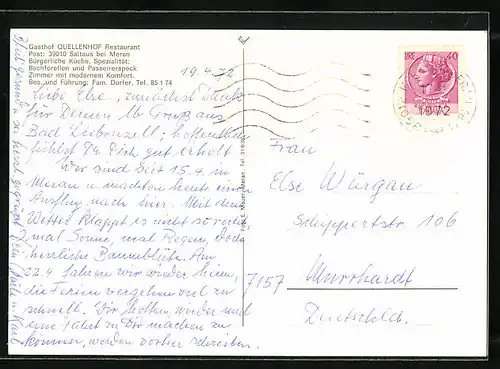 Gasthof QUELLENHOF Restaurant
Post: 39010 Saltaus bei Meran
Bürgerliche Küche, Spezialität:
Bachforellen und Passeirerspeck
Zimmer mit modernem Komfort.
Bes. und Führung: Fam. Dorfer, Tel. 85 1 74
19.4.72
Liebe Else, zunächst Dank
für Deinen lb Gruß aus
Bad Liebenzell; hoffentlich
fühlst Du Dich gut erholt
Wir sind seit 15.4. in
Meran u machten heute einen
Ausflug nach hier. Mit dem
Wetter klappt es nicht so recht
mal Sonne, mal Regen, doch
herrliche Baumblüte. Am
22.4 fahren wir wieder heim,
die Ferien vergehen viel zu
schnell. Wir hoffen, wieder mal
eine Fahrt zu Dir machen zu
können, werden vorher schreiben.
Foto E. Meran
LIRE 40
1972
Frau
Else Würgau
Schippertstr. 106
7157 Murrhardt
Deutschld.